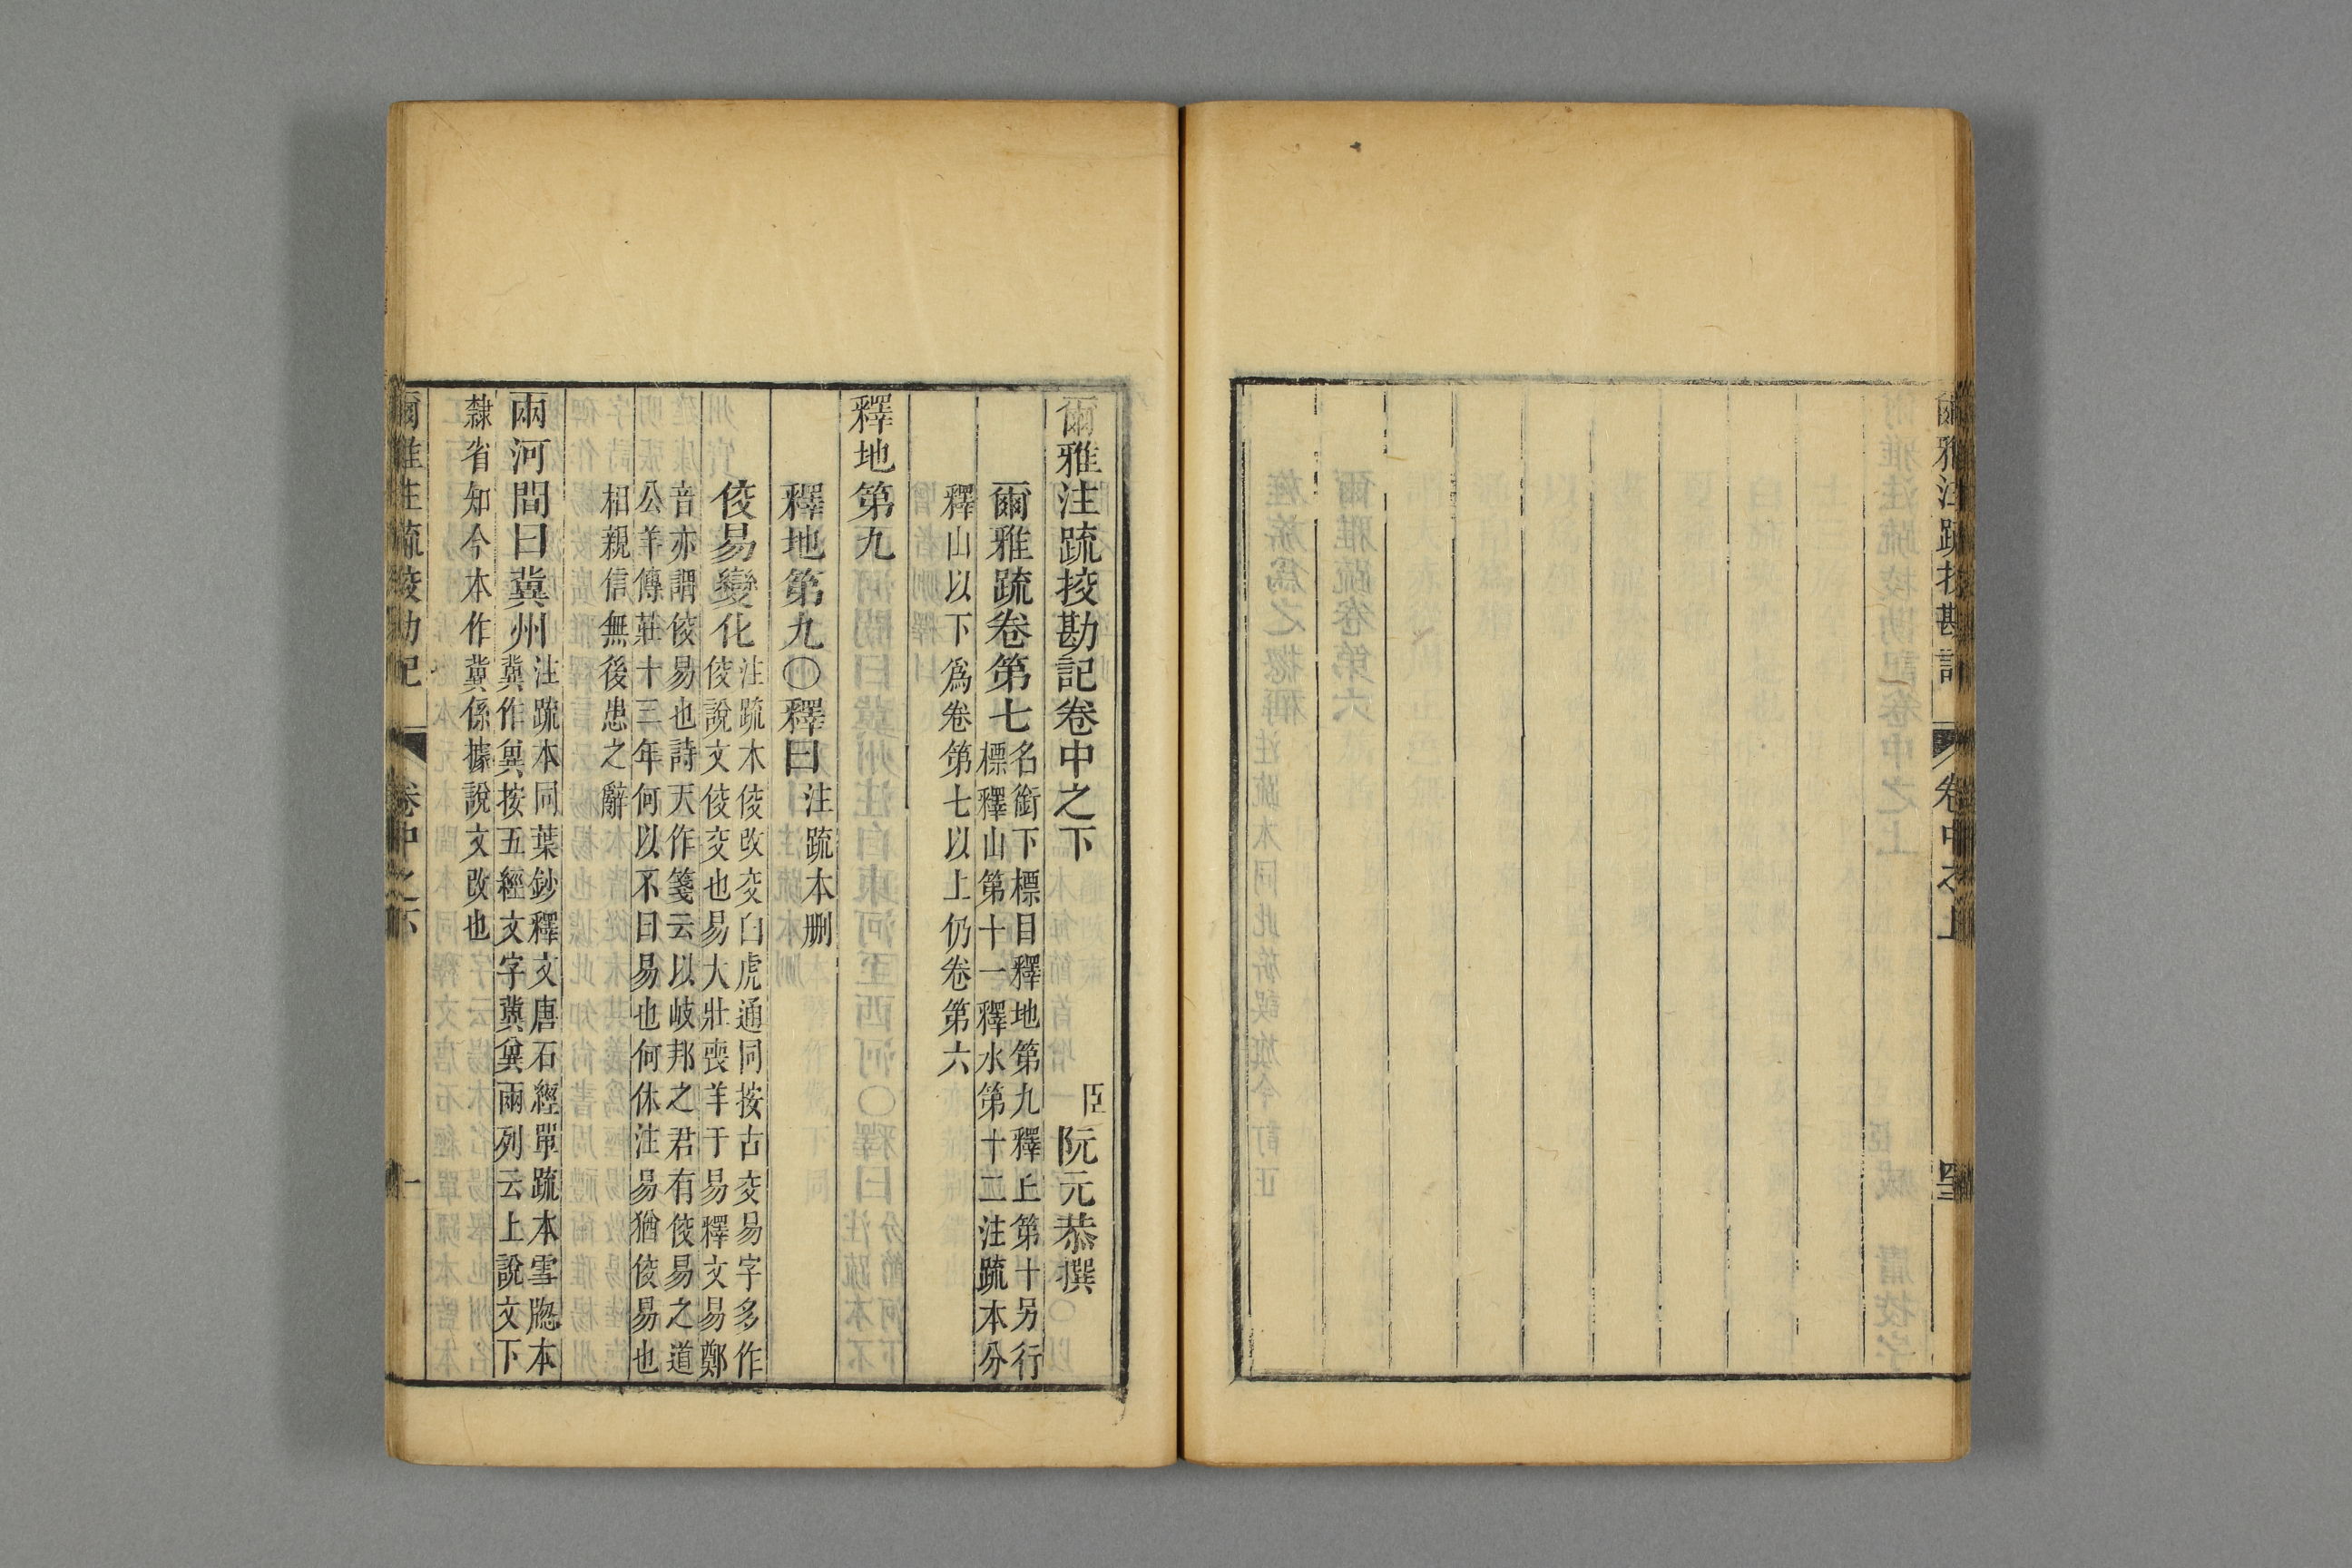 爾雅注疏挍勘記
卷中之上
爾雅注疏挍勘記卷中之下
臣阮元恭撰
爾雅疏卷第七名銜下標目釋地第九釋丘第十另行
標釋山第十一釋水第十二注疏本分
釋山以下爲卷第七以上仍卷第六
釋地第九
釋地第九○釋曰注疏本删
倰易變化注疏本倰改交白虎通同按古交易字多作
倰說文倰交也易大壯喪羊于易釋文易鄭
音亦謂倰易也詩天作箋云以岐邦之君有倰易之道
公羊傳莊十三年何以不日易也何休注易猶倰易也
相親信無後患之辭
兩河間曰冀州注疏本同葉鈔釋文唐石經單疏本雪牕本
冀作兾按五經文字冀兾兩列云上說文下
隸省知今本作冀係據說文改也
爾雅注疏挍勘記
卷中之下
一